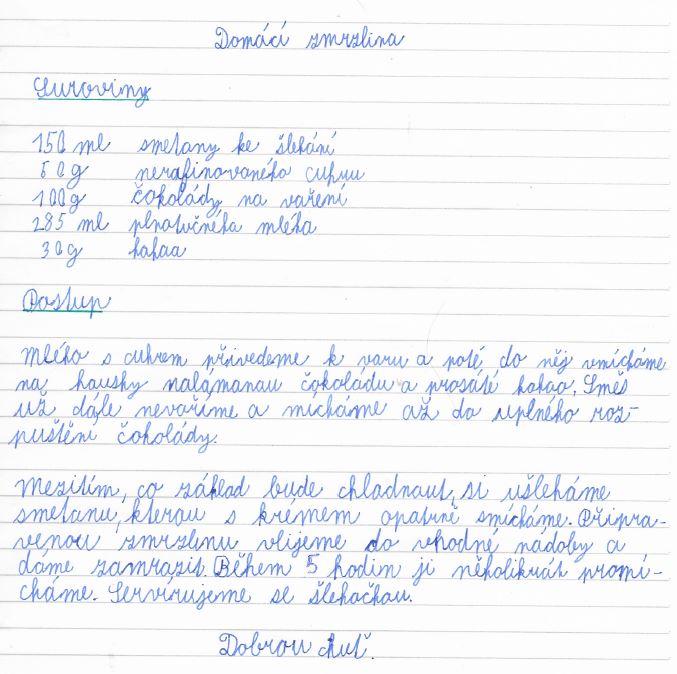 Domácí zmrzlina
Suroviny
150 ml smetany ke šlehání
60g nerafinovaného cukru
100g čokolády na vaření
285 ml plnotučného mléka
30g kakaa
Postup
Mléko s cukrem přivedeme k varu a poté do něj vmícháme
na kousky nalámanou čokoládu a prosáté kakao. Směs
už dále nevaříme a mícháme až do úplného roz-
puštění čokolády.
Mezitím, co základ bude chladnout, si ušleháme
smetanu, kterou s krémem opatrně smícháme. Připra-
venou zmrzlinu vlijeme do vhodné nádoby a
dáme zamrazit. Během 5 hodin ji několikrát promí-
cháme. Servírujeme se šlehačkou.
Dobrou chuť.